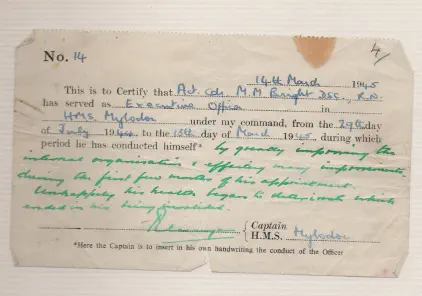 No. 14
4/
14th March 1945
This is to Certify that Act. Cdr. M.M. Bright DSC., R.N.
has served as Executive Officer in
H.M.S. Mylodon under my command, from the 29th day
of July 1944 to the 15th day of March 1945 during which
period he has conducted himself* by greatly improving the
internal organisation & effecting many improvements
during the first few months of his appointment.
Unhappily his health began to deteriorate which
ended in his being invalided.
Captain
H.M.S. Mylodon
*Here the Captain is to insert in his own handwriting the conduct of the Officer